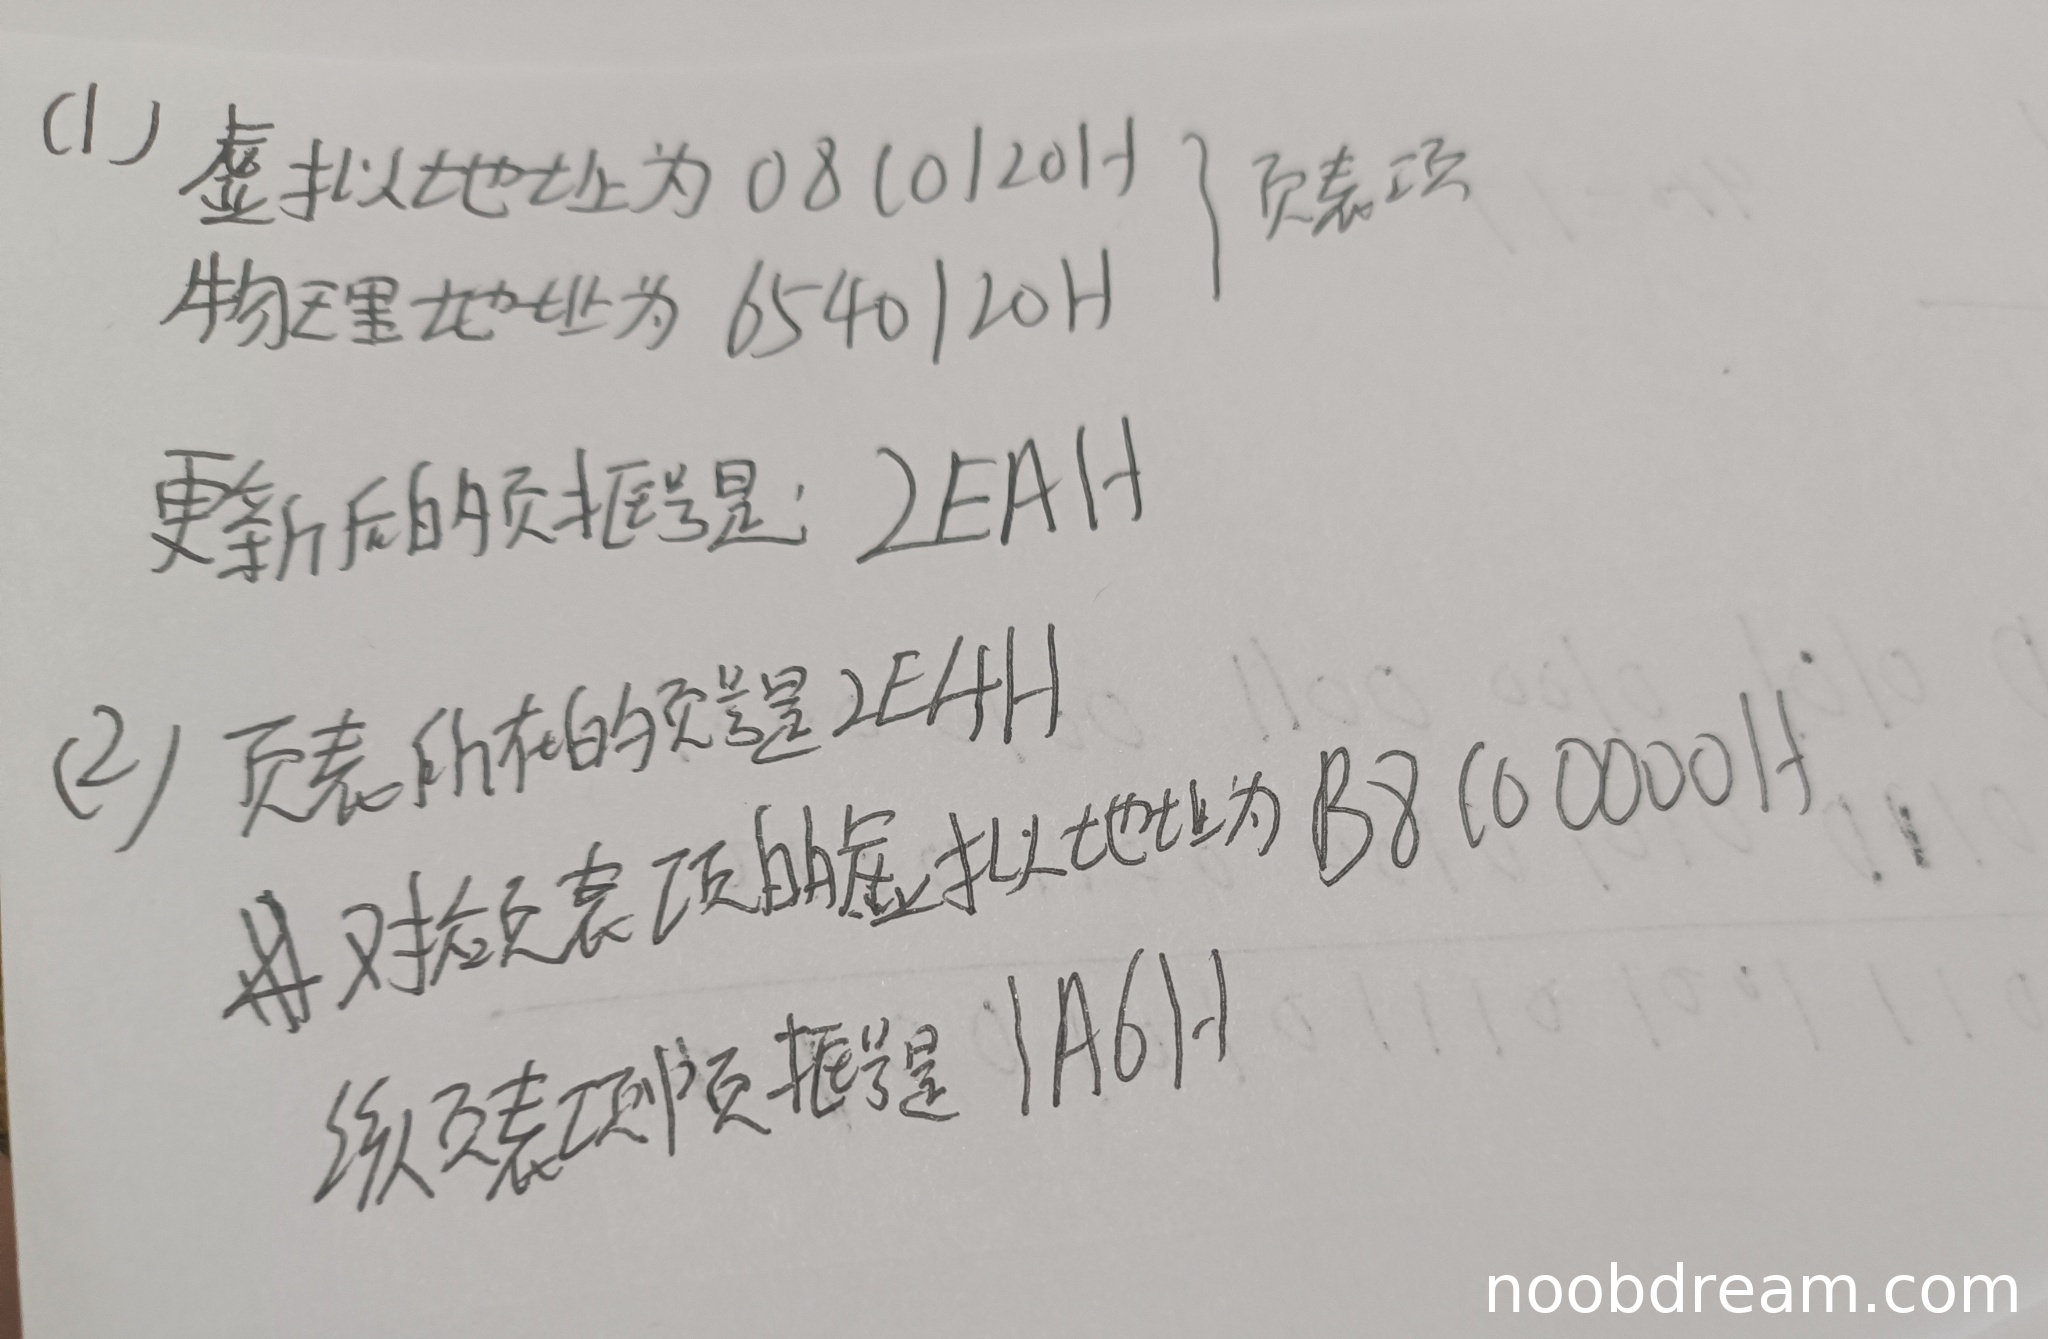 (1) 虚拟地址为 08C0120H } 页表项
物理地址为 6540120H
更新后的页框号是: 2EAH
(2) 页表所在的页号是2E4H
对应页表项的虚拟地址为 B8C00000H
级页表项的页框号是 1A6H
noobdream.com